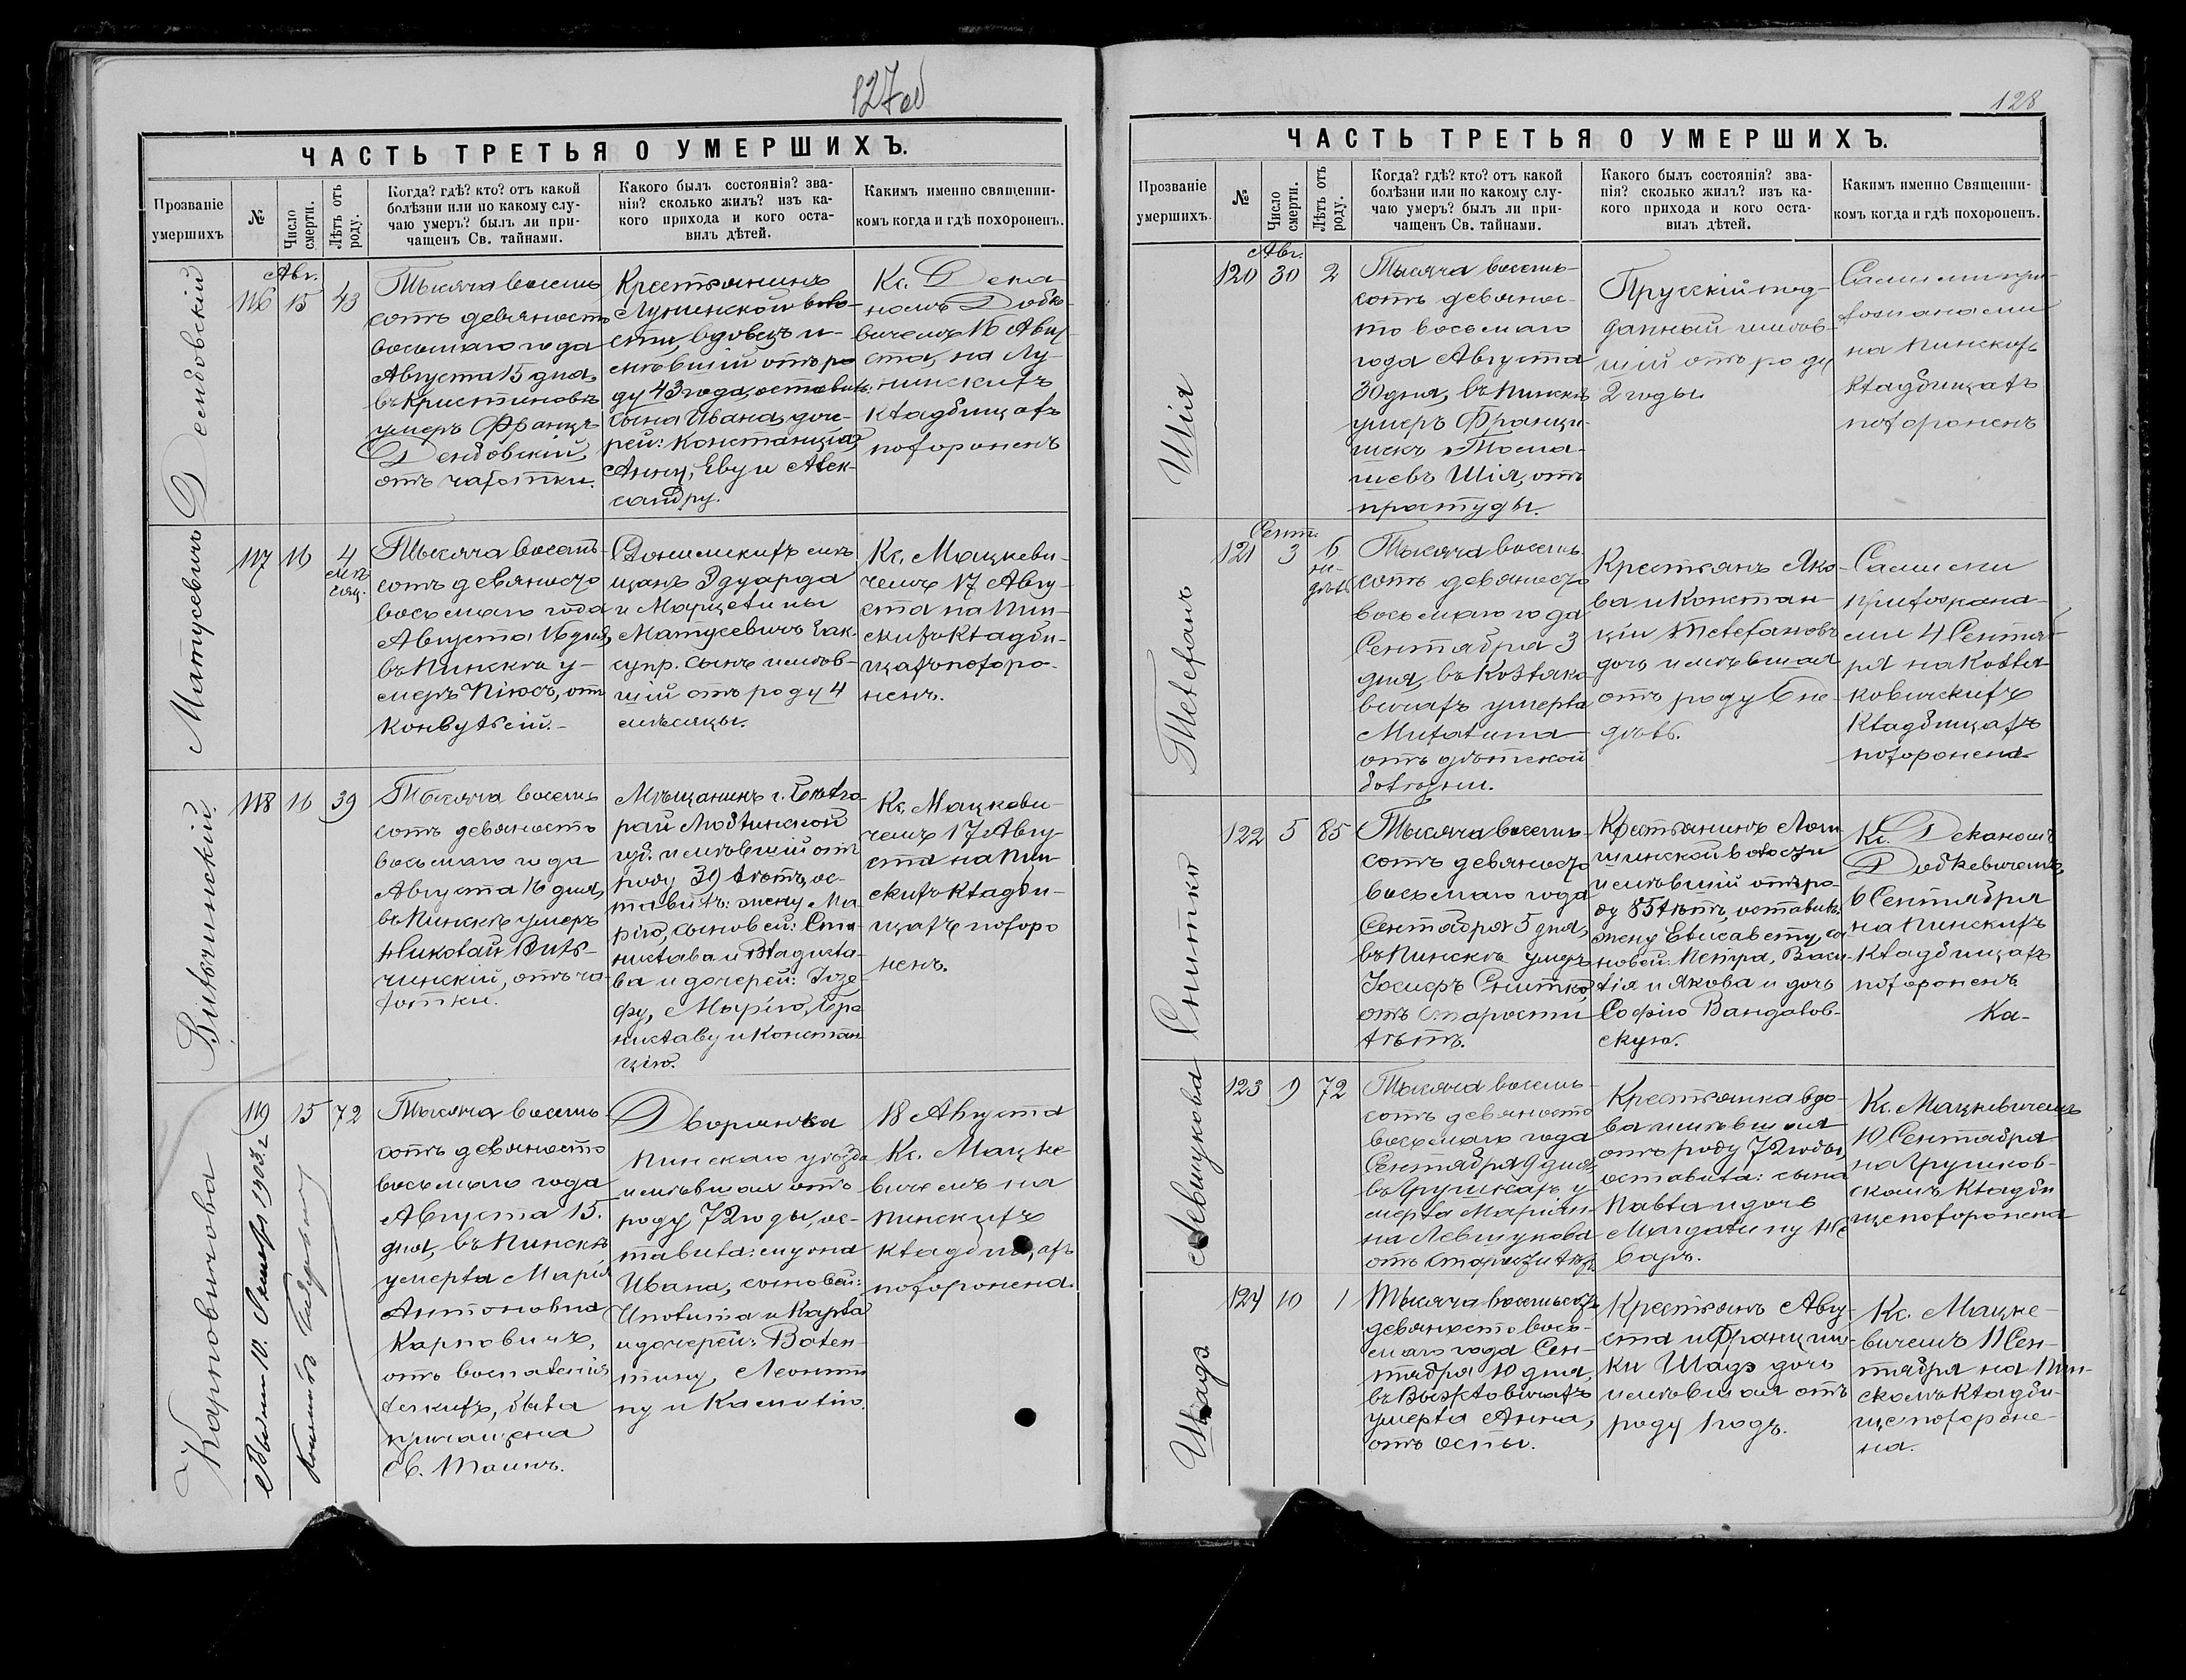 127об
ЧАСТЬ ТРЕТЬЯ О УМЕРШИХЪ.
Прозваніе умершихъ
№
Число смерти.
Лѣтъ отъ роду.
Когда? гдѣ? кто? отъ какой
болѣзни или по какому слу-
чаю умеръ? былъ ли при-
чащенъ Св. тайнами.
Какого былъ состоянія? зва-
нія? сколько жилъ? изъ ка-
кого прихода и кого оста-
вилъ дѣтей.
Какимъ именно священни-
комъ когда и гдѣ похороненъ.
Дембовскій
Авг.
116 15 43
Тысяча восемь
сотъ девяносто
восьмаго года
Августа 15 дня,
въ Кристиновѣ
умеръ Францъ
Дембовскій,
отъ чахотки.
Крестьянинъ
Лунинской воло-
сти, вдовецъ и-
мѣвшій отъ ро
ду 43 года, оставилъ:
сына Ивана, доче-
рей: Констанцію,
Анну, Еву и Алек-
сандру.
Кс. Дека-
номъ Добке-
вичемъ 16 Авгу-
ста, на Лу-
нинскихъ
кладбищахъ
похороненъ
Матусевичъ
117 16 4
мѣ
сяц.
Тысяча восемь-
сотъ девяносто
восьмаго года
Августа 16 дня,
въ Пинскѣ у-
меръ Піюсъ, отъ
конвульсій.-
мѣ-
щанъ Эдуарда
и Марцелины
Матусевичъ зак-
супр. сынъ имѣв-
шій отъ роду 4
мѣсяцы.
Кс. Мацкеви-
чемъ 17 Авгу-
ста на Пин-
скихъ кладби-
щахъ похоро-
ненъ.
Вильчинскій.
118 16 39
Тысяча восемь
сотъ девяносто
восьмаго года
Августа 16 дня,
въ Пинскѣ умеръ
Николай Виль-
чинскій, отъ ча-
хотки.
Мѣщанинъ г. Бѣлго-
рай Люблинской
губ. имѣвшій отъ
роду 39 лѣтъ, ос-
тавилъ: жену Ма
рію, сыновей: Ста
нислава и Владисла-
ва и дочерей: Юзе-
фу, Марію, Бро
ниславу и Констан
цію.
Кс. Мацкеви-
чемъ 17 Авгу-
ста на Пин-
скихъ кладби-
щахъ похоро
ненъ.
Карповичова
119 15 72
Тысяча восемь-
сотъ девяносто
восьмаго года
Августа 15.
дня, въ Пинскѣ
умерла Марія
Антоновна
Карповичъ,
отъ воспаленія
легкихъ, была
пріобщена
Св. Таинъ.
Дворянка
Пинскаго уѣзда
имѣвшая отъ
роду 72 годы, ос-
тавила: мужа
Ивана, сыновей:
Иполита и Карла
и дочерей: Вален-
тину, Леонти
ну и Камилію.
18 Августа
Кс. Мацке
вичемъ на
Пинскихъ
кладбищахъ
похоронена.
128
ЧАСТЬ ТРЕТЬЯ О УМЕРШИХЪ.
Прозваніе умершихъ.
№
Число смерти.
Лѣтъ отъ роду.
Когда? гдѣ? кто? отъ какой
болѣзни или по какому слу-
чаю умеръ? былъ ли при-
чащенъ Св. тайнами.
Какого былъ состоянія? зва-
нія? сколько жилъ? изъ ка-
кого прихода и кого оста-
вилъ дѣтей.
Какимъ именно Священни-
комъ когда и гдѣ похороненъ.
Шія
Авг.
120 30 2
Тысяча восемь-
сотъ девянос-
то восьмаго
года Августа
30 дня, въ Пинскѣ
умеръ Франци-
шекъ Тома-
шевъ Шія, отъ
простуды.
Прусскій под-
данный имѣв-
шій отъ роду
2 годы.
Самими при-
хожанами
на Пинскихъ
кладбищахъ
похороненъ
Телефанъ
Сент.
121 3 6
не-
дѣль
Тысяча восемь-
сотъ девяносто
восьмаго года
Сентября 3
дня, въ Козляко
вичахъ умерла
Михалина
отъ дѣтской
болѣзни.
Крестьянъ Яко-
ва и Констан-
ціи Телефановъ
дочь имѣвшая
отъ роду 6 не-
дѣль.
Самими
прихожана-
ми 4 Сентяб-
ря на Козля-
ковичскихъ
кладбищахъ
похоронена
Снитко
122 5 85
Тысяча восемь-
сотъ девяносто
восьмаго года
Сентября 5 дня,
въ Пинскѣ умеръ
Іосифъ Снитко,
отъ старости
лѣтъ.
Крестьянинъ Логи
шинской волости
имѣвшій отъ ро-
ду 85 лѣтъ, оставилъ:
жену Елисавету, сы
новей: Петра, Васи-
лія и Якова и дочь
Софію Вандалов-
скую.
Кс. Деканомъ
Добкевичемъ,
6 Сентября
на Пинскихъ
кладбищахъ
похороненъ
Ка-
Левшукова
123 9 72
Тысяча восемь-
сотъ девяносто
восьмаго года
Сентября 9 дня,
въ Грушкахъ у-
мерла Маріан-
на Левшукова
отъ старости лѣтъ
Крестьянка вдо-
ва имѣвшая
отъ роду 72 годы,
оставила: сына
Павла и дочь
Магдалину
Кс. Мацкевичемъ
10 Сентября
на Грушков-
скомъ кладби
щѣ похоронена
Шадэ
124 10 1
Тысяча восемьсотъ
девяносто вось-
маго года Сен-
тября 10 дня,
въ Выжловичахъ
умерла Анна,
отъ оспы.
Крестьянъ Авгу-
ста и Францишки
Шадэ дочь
имѣвшая отъ
роду 1 годъ.
Кс. Мацке-
вичемъ 11 Сен-
тября на Пин-
скомъ кладби-
щѣ похороне-
на.